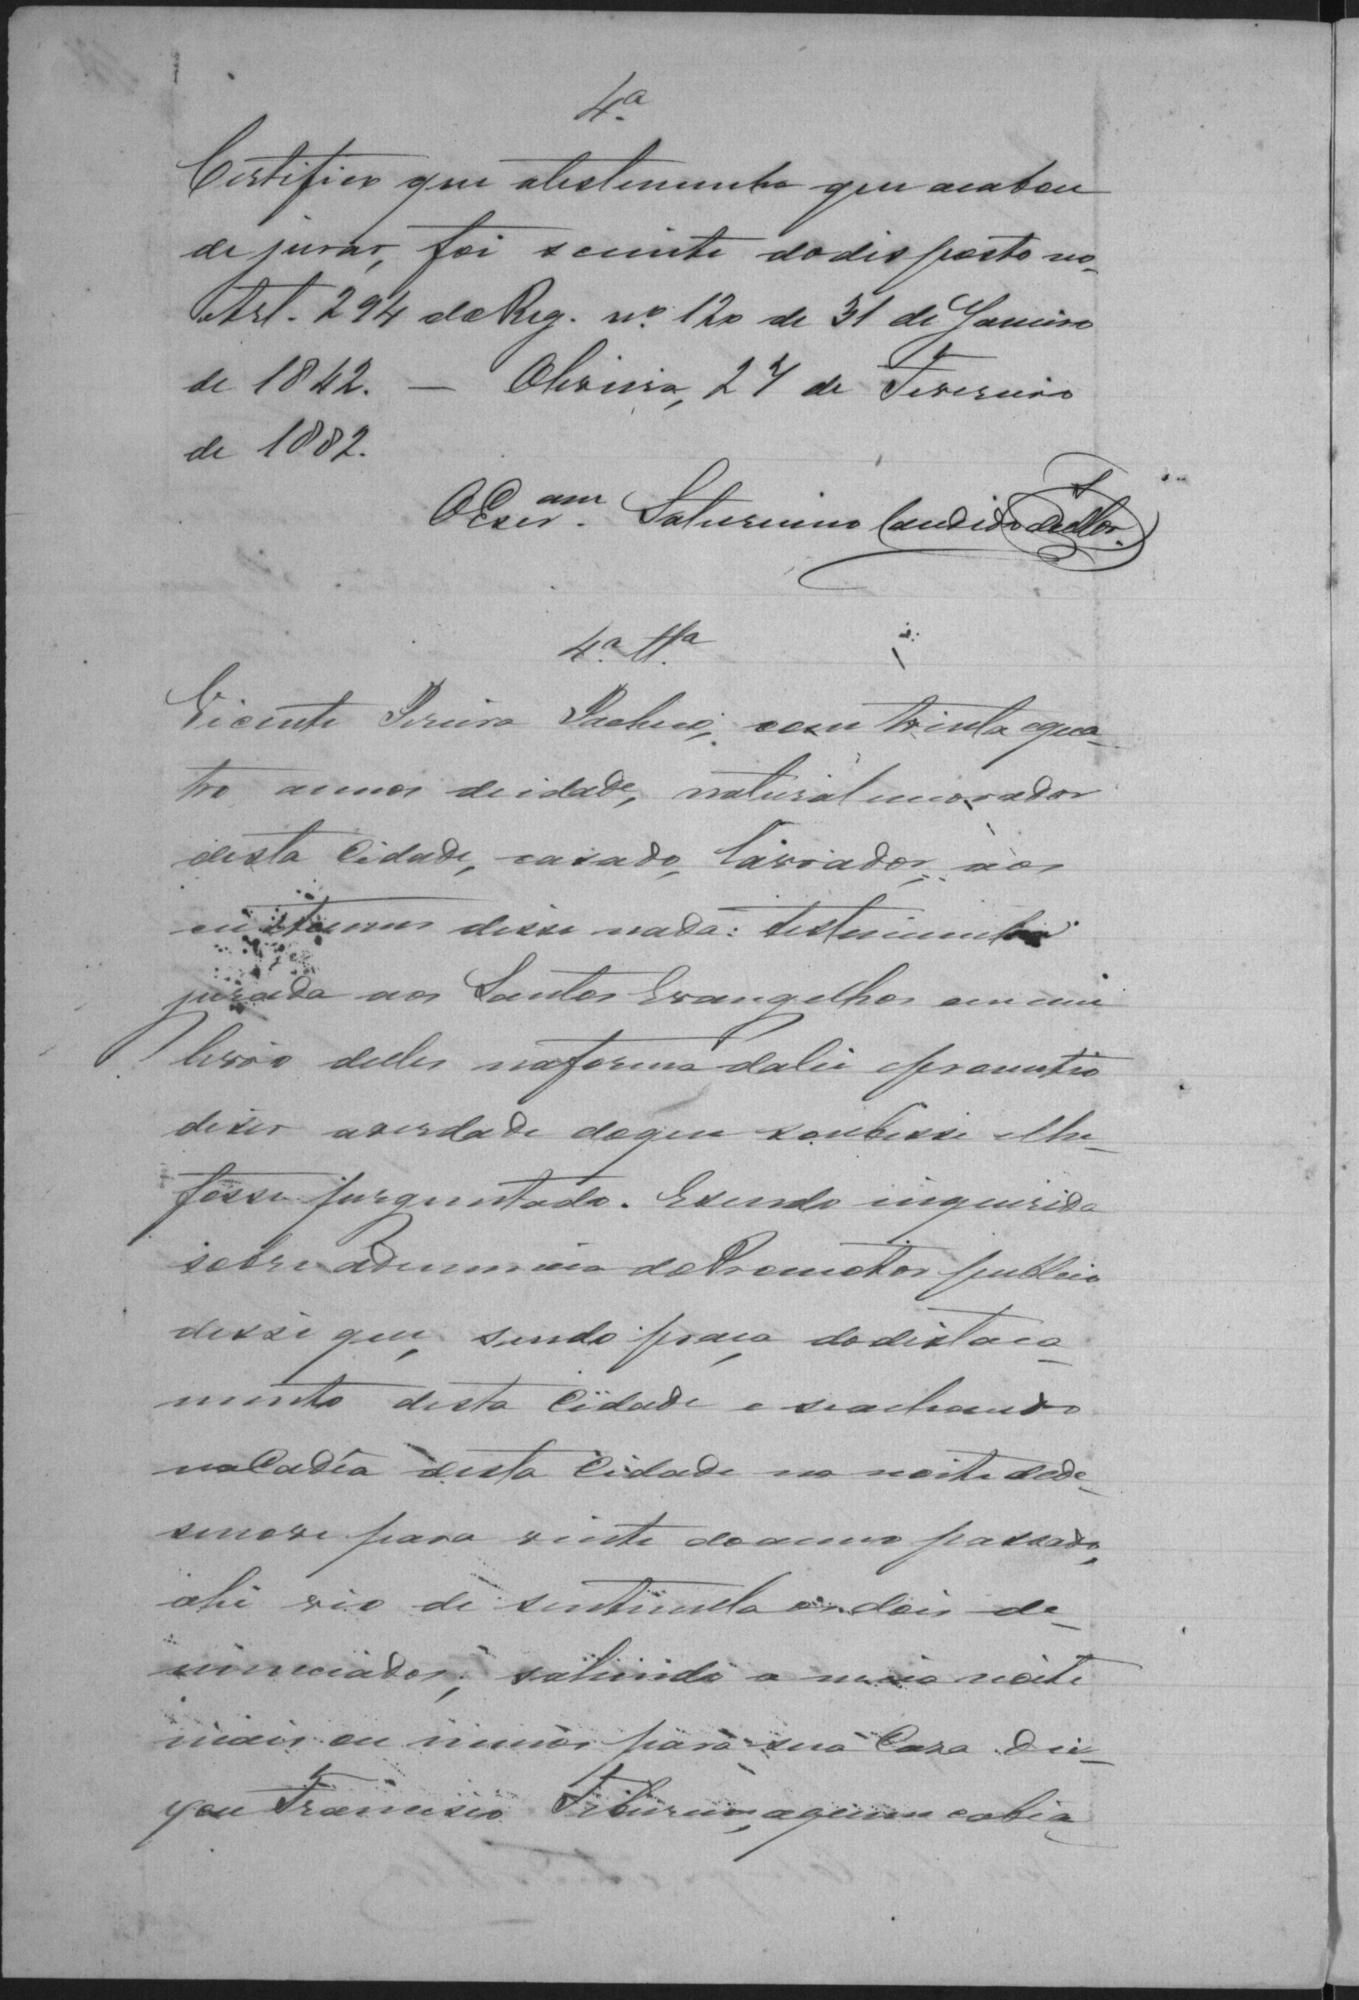 4.ª
Certifico que atestemunha que acabou
de jurar, foi sciente dodisposto no
Art. 294 do Reg. nº 120 de 31 de Janeiro
de 1842. — Oliveira, 27 de Fevereiro
de 1882.
O Escr.am Saturnino Candido
4.ª Tt.ª
Vicente Pereira Pacheco, com trinta equa-
tro annos deidade, natural emorador
desta Cidade, casado, lavrador, aos
custumes disse nada: testemunha
jurada aos Santos Evangelhos em um
livro delles naforma dalei eprometio
diser averdade doque soubesse elhe
fosse perguntado. Esendo inquirida
sobre adenuncia doPromotor publico
disse que, sendo praça dodestaca-
mento desta Cidade e seachando
naCadêa desta Cidade na noite dede-
senove para vinte doanno passado,
ahi vio de sentinella os dois de-
nunciados; sahindo a meia noite
mais ou menos para sua Casa dei-
you Francisco aquem cabia